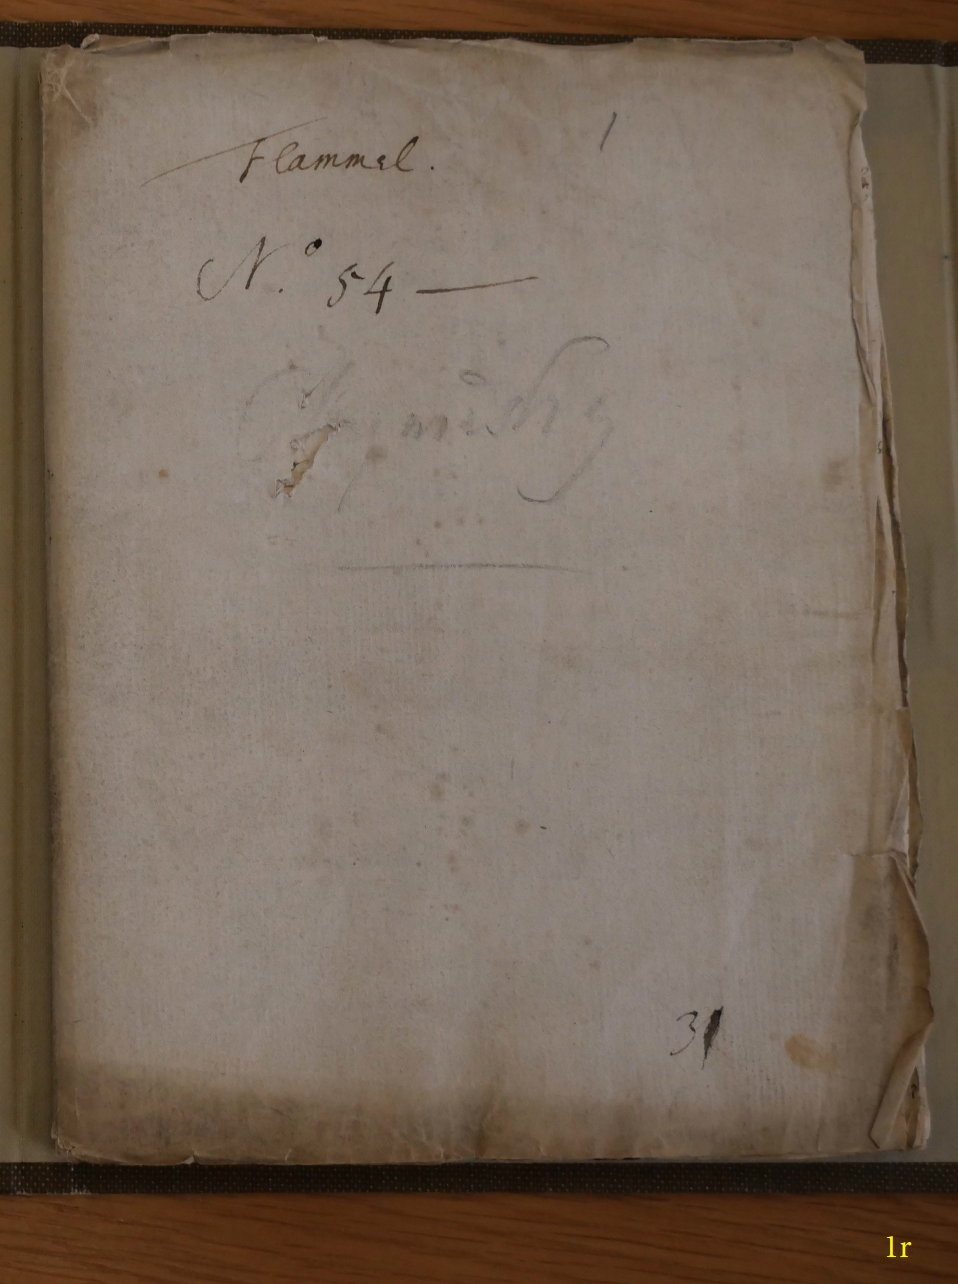 Flammel. 1
N.º 54 —
Chymistry
31
1r